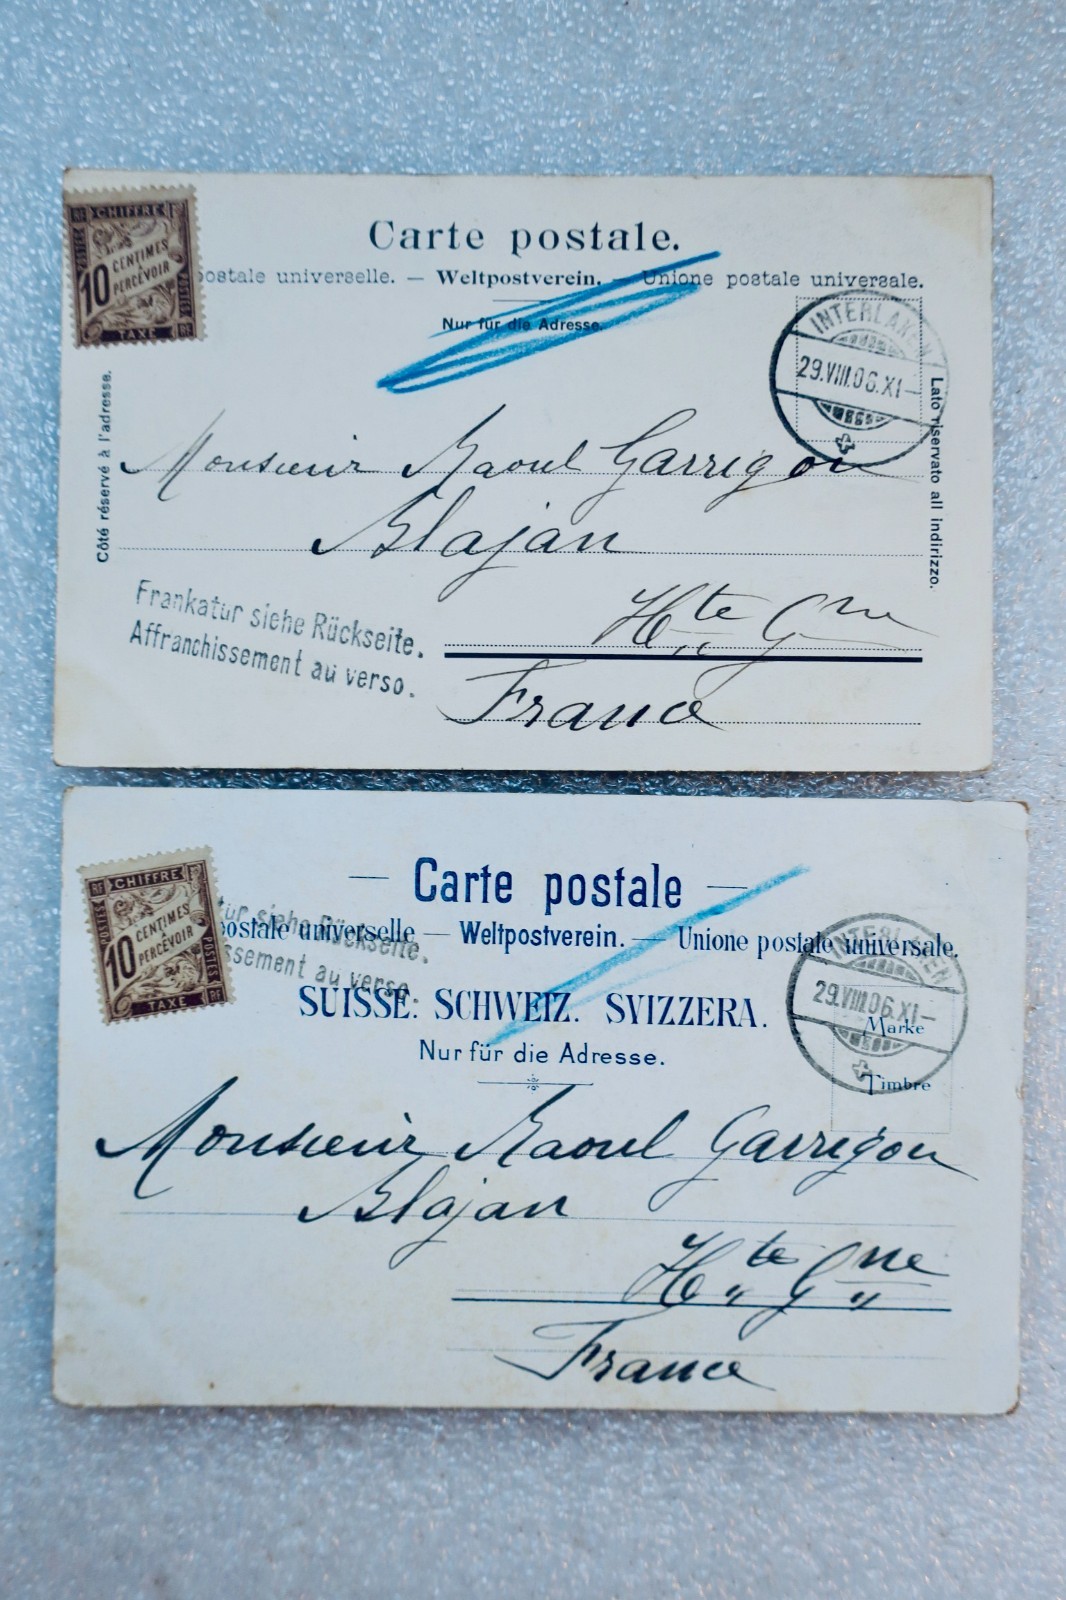 Carte postale.
postale universelle. — Weltpostverein. — Unione postale universale.
Nur für die Adresse.
CHIFFRE
RF
POSTES
10
CENTIMES
PERCEVOIR
POSTES
TAXE
RF
INTERLAKEN
29.VIII.06.XI–
Côté réservé à l'adresse.
Lato riservato all indirizzo.
Monsieur Raoul Garrigou
Blajan
Hte Gne
France
Frankatur siehe Rückseite.
Affranchissement au verso.
— Carte postale —
postale universelle — Weltpostverein. — Unione postale universale.
SUISSE. SCHWEIZ. SVIZZERA.
Nur für die Adresse.
RF
CHIFFRE
POSTES
10
CENTIMES
PERCEVOIR
POSTES
TAXE
RF
tur siehe Rückseite.
ssement au verso.
INTERLAKEN
29.VIII.06.XI–
Marke
Timbre
Monsieur Raoul Garrigou
Blajan
Hte Gne
France